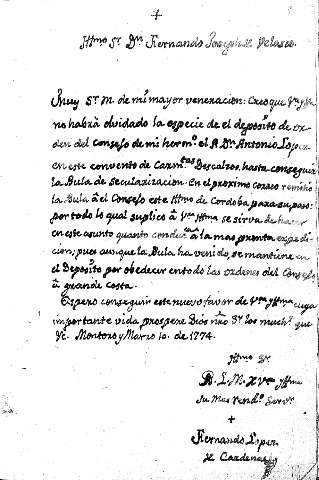 Yttmo Sr. Dn. Fernando Joseph de Velasco.
Muy Sr. M. de mi mayor veneracion: Creo que Vra Ytta
no habrà olvidado la especie de el deposito de or-
den del Consejo de mi hermo. el R. Dr. Antonio Lopez
en este convento de Carmtas Descalzos, hasta conseguir
la Bula de Secularizacion. En el proximo correo remitio
la Bula â el Consejo este Yttmo de Cordoba para su paso:
por todo lo qual suplico â Vra Yttma se sirva de hacer
en este asunto quanto conduzca â la mas pronta expedi-
cion; pues aunque la Bula ha venido, se mantiene en
el Deposito por obedecer en todo las ordenes del Consejo,
â grande costa.
Espero conseguir este nuevo favor de Vra Yttma cuya
importante vida prospere Dios nro Sr. los muchs. que
Yc. Montoro y Marzo 10. de 1774.
Yttmo Sr.
B. L. M. de Vra Yttma
Su mas rendo. Servr.
+
Fernando Lopez
de Cardenas